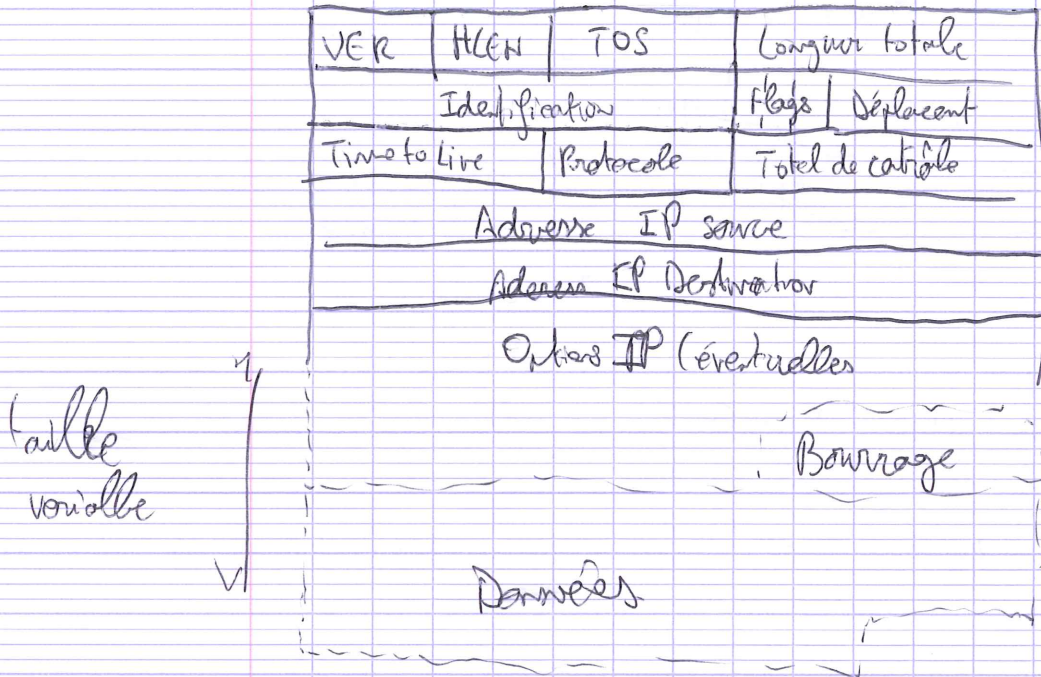 VER HLEN TOS Longueur totale
Identification Flags Déplacent
Time to Live Protocole Total de contrôle
Adresse IP source
Adresse IP Destination
Options IP (éventuelles
taille
variable
Bourrage
Données